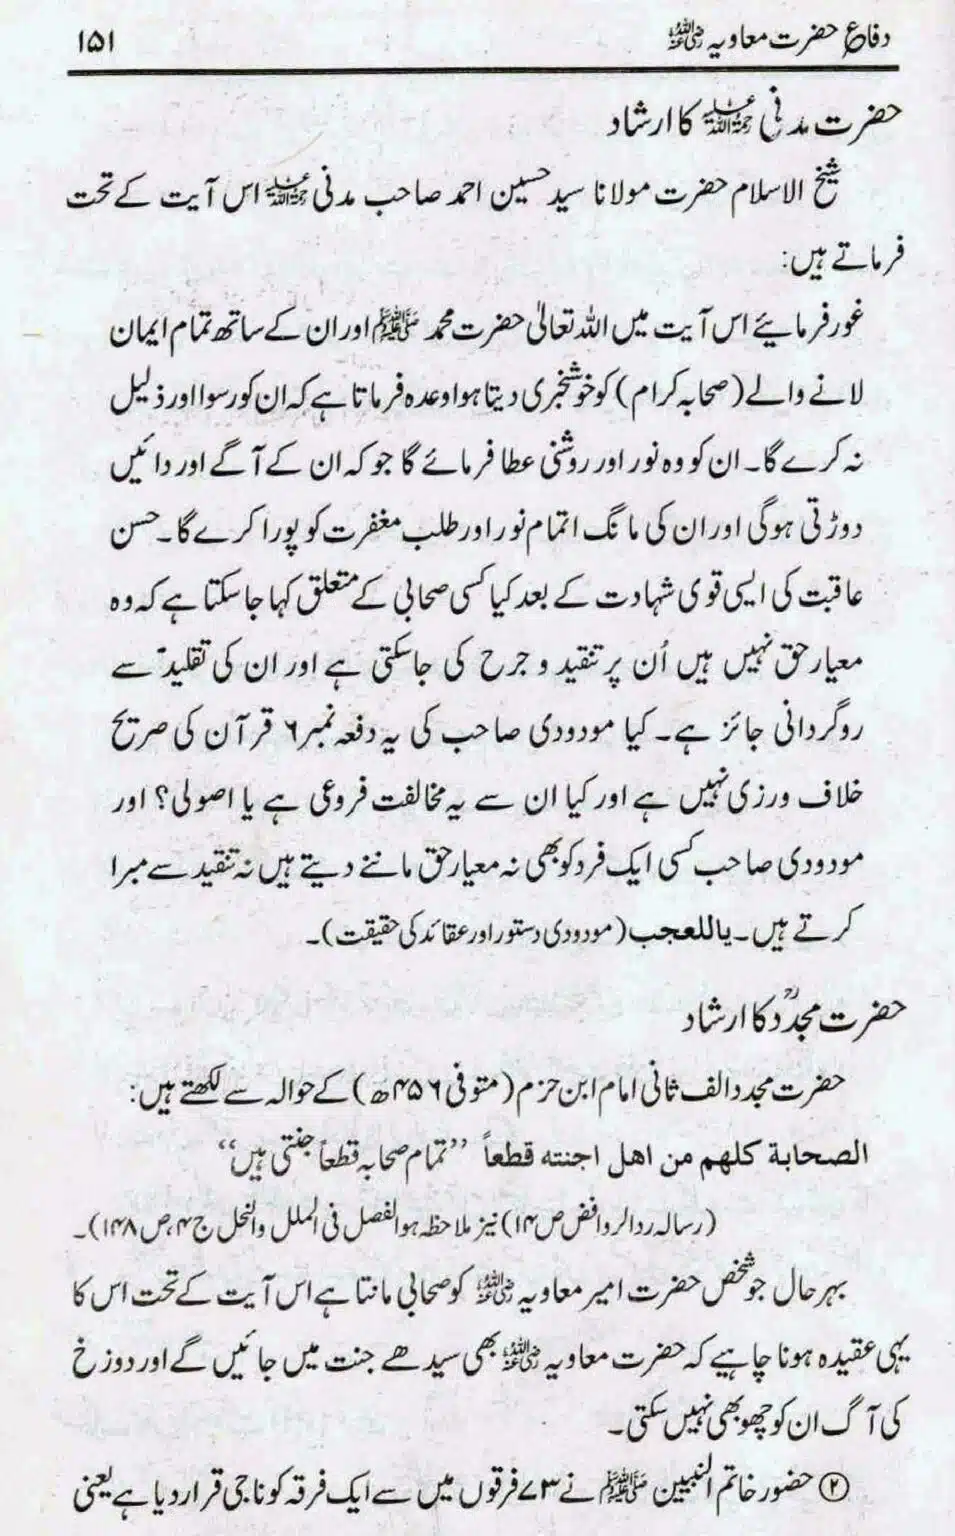 دفاعِ حضرت معاویہ رضی اللہ عنہ ۱۵۱
حضرت مدنی رحمۃ اللہ علیہ کا ارشاد
شیخ الاسلام حضرت مولانا سید حسین احمد صاحب مدنی رحمۃ اللہ علیہ اس آیت کے تحت
فرماتے ہیں:
غور فرمائیے اس آیت میں اللہ تعالیٰ حضرت محمد ﷺ اور ان کے ساتھ تمام ایمان
لانے والے (صحابہ کرام) کو خوشخبری دیتا ہوا وعدہ فرماتا ہے کہ ان کو رسوا اور ذلیل
نہ کرے گا۔ ان کو وہ نور اور روشنی عطا فرمائے گا جو کہ ان کے آگے اور دائیں
دوڑتی ہوگی اور ان کی مانگ اتمام نور اور طلب مغفرت کو پورا کرے گا۔ حسن
عاقبت کی ایسی قوی شہادت کے بعد کیا کسی صحابی کے متعلق کہا جاسکتا ہے کہ وہ
معیار حق نہیں ہیں اُن پر تنقید و جرح کی جاسکتی ہے اور ان کی تقلید سے
روگردانی جائز ہے۔ کیا مودودی صاحب کی یہ دفعہ نمبر ۶ قرآن کی صریح
خلاف ورزی نہیں ہے اور کیا ان سے یہ مخالفت فروعی ہے یا اصولی؟ اور
مودودی صاحب کسی ایک فرد کو بھی نہ معیار حق ماننے دیتے ہیں نہ تنقید سے مبرا
کرتے ہیں۔ یاللعجب (مودودی دستور اور عقائد کی حقیقت)۔
حضرت مجددؒ کا ارشاد
حضرت مجدد الف ثانی امام ابن حزم (متوفی ۴۵۶ھ) کے حوالہ سے لکھتے ہیں:
الصحابة کلهم من اهل اجنته قطعاً ’’تمام صحابہ قطعاً جنتی ہیں‘‘
(رسالہ ردالروافض ص ۱۴) نیز ملاحظہ ہو الفصل فی الملل والنحل ج ۴، ص ۱۴۸)۔
بہرحال جو شخص حضرت امیر معاویہ رضی اللہ عنہ کو صحابی مانتا ہے اس آیت کے تحت اس کا
یہی عقیدہ ہونا چاہیے کہ حضرت معاویہ رضی اللہ عنہ بھی سیدھے جنت میں جائیں گے اور دوزخ
کی آگ ان کو چھو بھی نہیں سکتی۔
② حضور خاتم النبیین ﷺ نے ۷۳ فرقوں میں سے ایک فرقہ کو ناجی قرار دیا ہے یعنی